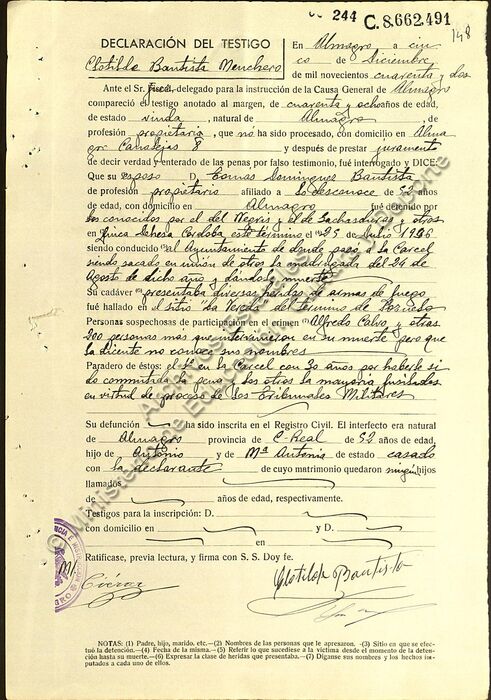 244 C.8.662,491
148
DECLARACIÓN DEL TESTIGO
Clotilde Bautista Menchero
En Almagro a cin
co de Diciembre
de mil novecientos cuarenta y dos
Ante el Sr. Fiscal, delegado para la instrucción de la Causa General de Almagro
compareció el testigo anotado al margen, de cuarenta y ocho años de edad,
de estado viuda, natural de Almagro, de
profesión propietaria, que no ha sido procesado, con domicilio en Alma
gro Canalejas 8 y después de prestar juramento
de decir verdad y enterado de las penas por falso testimonio, fué interrogado y DICE:
Que su esposo D. Tomas Dominguez Bautista
de profesión propietario afiliado a Lo desconoce de 52 años
de edad, con domicilio en Almagro fué detenido por
los conocidos por el del Negris y el de Sachasduras y otros
en finca Dehesa Cordoba este termino el 25 de Julio 1936
siendo conducido al Ayuntamiento de donde pasó a la Carcel
siendo sacado en union de otros la madrugada del 24 de
Agosto de dicho año y dandole muerte
Su cadáver presentaba diversas heridas de armas de fuego
fué hallado en el sitio La Vereda del termino de Pozuelo
Personas sospechosas de participación en el crimen Alfredo Calvo y otras
200 personas mas que intervinieron en su muerte pero que
la dicente no conoce sus nombres
Paradero de éstos: el 1º en la Carcel con 30 años por haberle si
do conmutada la pena y los otros la mayoria fusilados
en virtud de proceso de los Tribunales Militares
Su defunción ha sido inscrita en el Registro Civil. El interfecto era natural
de Almagro provincia de C-Real de 52 años de edad,
hijo de Antonio y de Mª Antonia de estado casado
con la declarante de cuyo matrimonio quedaron ningún hijos
llamados
de años de edad, respectivamente.
Testigos para la inscripción: D.
con domicilio en y D.
en
Ratifícase, previa lectura, y firma con S. S. Doy fe.
Clotilde Bautista
NOTAS: (1) Padre, hijo, marido. etc.—(2) Nombres de las personas que le apresaron. (3) Sitio en que se efec-
tuó la detención.—(4) Fecha de la misma.—(5) Referir lo que sucediese a la víctima desde el momento de la deten-
ción hasta su muerte.—(6) Expresar la clase de heridas que presentaba.—(7) Díganse sus nombres y los hechos im-
putados a cada uno de ellos.